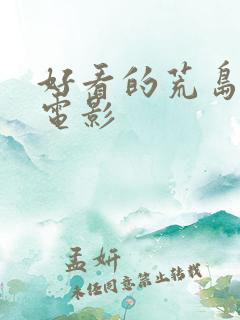 好看的荒岛
电影
孟妍
未经同意禁止转载